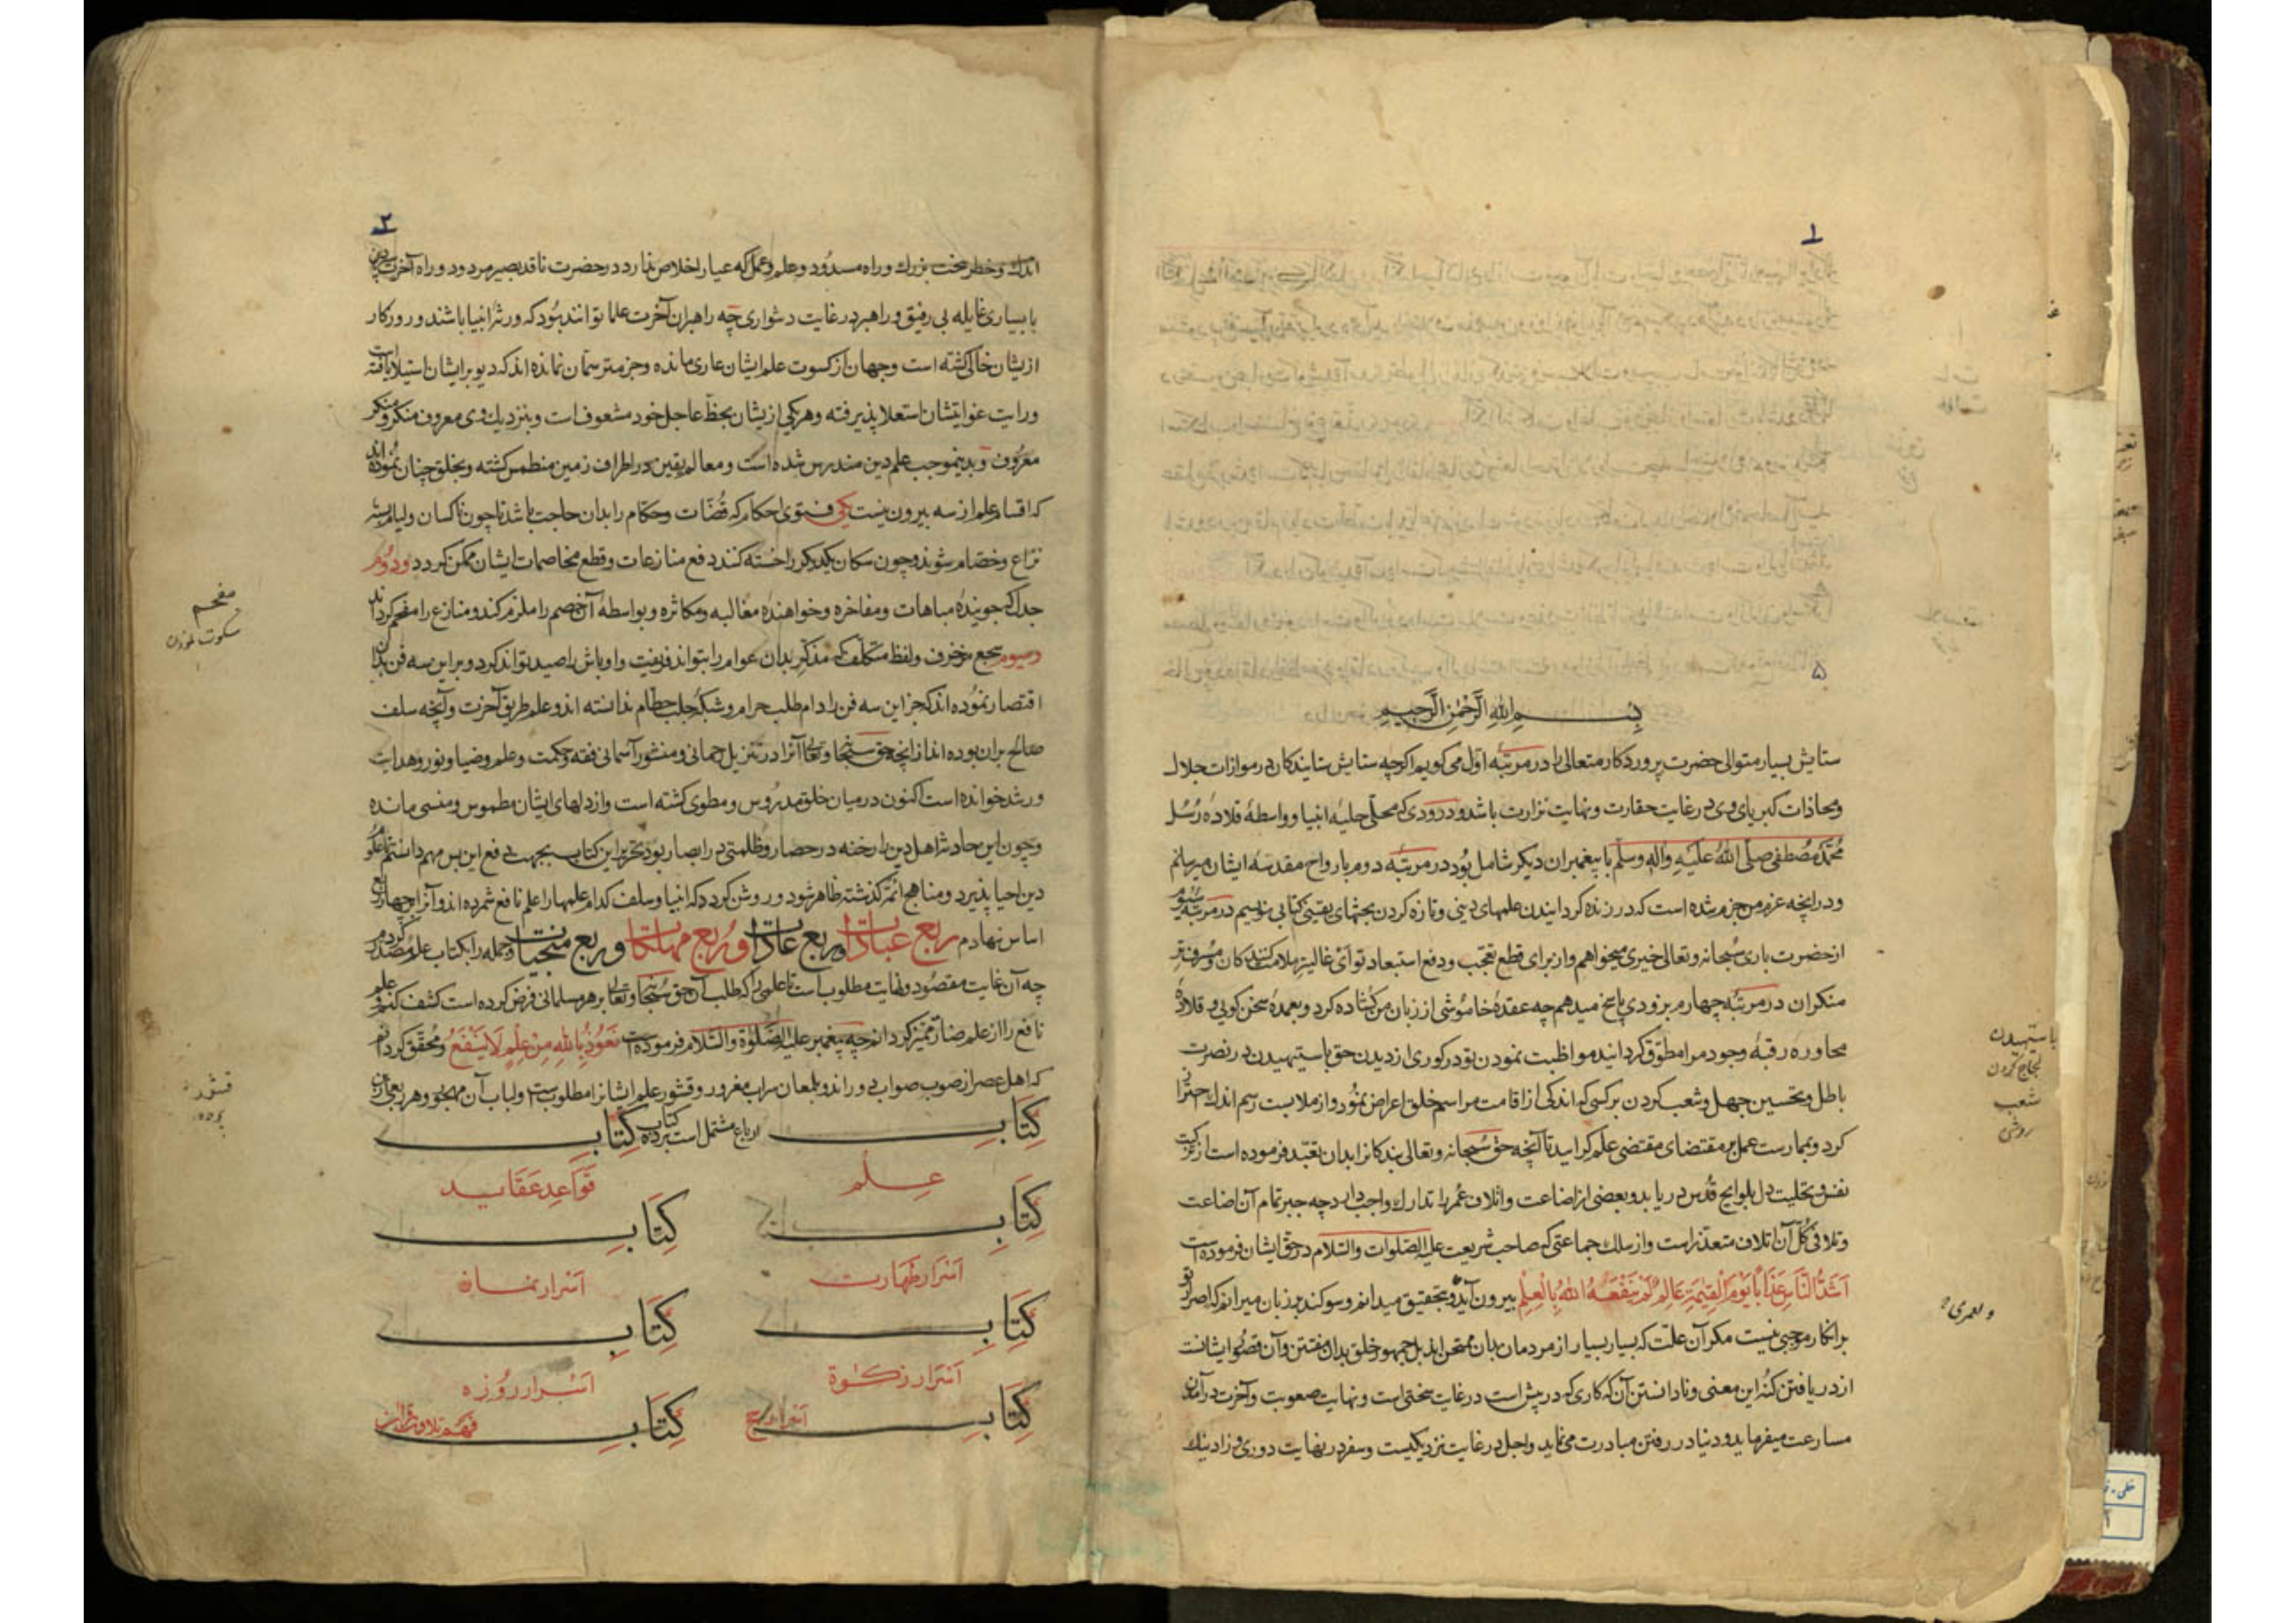 ۱
بسم الله الرحمن الرحیم
ستایش بسیار متوالی حضرت پروردکار متعالی را در مرتبه اول می کویم اکرچه ستایش ستایندکان در موازات جلال
ومحاذات کبریای وی در غایت حقارت ونهایت نزارت باشد ودرودی که محلی حلیه انبیا وواسطه قلاده رسل
محمد مصطفی صلی الله علیه واله وسلم با پیغمبران دیکر شامل بود در مرتبه دوم بارواح مقدسه ایشان میرسانم
ودر انچه عزم من جزم شده است که در زنده کردانیدن علمهای دینی وتازه کردن بحثهای یقینی کتابی نویسم در مرتبه سیوم
از حضرت باری سبحانه وتعالی خیری میخواهم واز برای قطع تعجب ودفع استبعاد تو ای غالی تر ملامت کنندکان ومسرف تر
منکران در مرتبه چهارم بزودی پاسخ میدهم چه عقده خاموشی از زبان من کشاده کرد وبعهده سخن کویی و قلاده
محاوره رقبه وجود مرا مطوق کردانید مواظبت نمودن تو در کوری از دیدن حق باستیهیدن در نصرت
باطل وتحسین جهل وشعب کردن بر کسی که اندکی از اقامت مراسم خلق اعراض نمود واز ملابست رسم اندک احتراز
کرد وبممارست عمل بر مقتضای مقتضی علم کرایید تا آنچه حق سبحانه وتعالی بندکانرا بدان تعبد فرموده است از تزکیت
نفس وتحلیت دل بلوایح قدس در یابد وبعضی از اضاعت واتلاف عمر را تدارک واجب دارد چه جبر تمام آن اضاعت
وتلافی کل آن اتلاف متعذر است واز سلک جماعتی که صاحب شریعت علیه الصلوات والسلام در حق ایشان فرموده است
اشد الناس عذابا یوم القیمة عالم لم ینفعه الله بالعلم بیرون آید وبتحقیق میدانم وسوکند بر زبان میرانم که اصرار تو
بر انکار موجبی نیست مکر آن علت که بسیار بسیار از مردمان بدان ممتحن اند بل جمهور خلق بدان مفتتن وآن قصور ایشانست
از دریافتن کنه این معنی ونادانستن آن که کاری که در پیش است در غایت سختی است ونهایت صعوبت وآخرت در آمدن
مسارعت میفرماید ودنیا در رفتن مبادرت می نماید واجل در غایت نزدیکیست وسفر در نهایت دوری وزاد نیک
باستیهیدن
لجاج کردن
شعب
ولعمری
۲
اندک وخطر سخت بزرک وراه مسدود وعلم وعمل که عیار اخلاص ندارد در حضرت ناقد بصیر مردود وراه آخرت
با بسیاری غایله بی رفیق وراهبر در غایت دشواری چه راهبران آخرت علما توانند بود که ورثه انبیا باشند وروزکار
ازیشان خالی کشته است وجهان از کسوت علم ایشان عاری مانده وجز مترسمان نمانده اند که دیو بر ایشان استیلا یافته است
ورایت غوایتشان استعلا پذیرفته وهر یکی ازیشان بحظ عاجل خود مشعوف است وبنزدیک وی معروف منکر ومنکر
معروف وبدینموجب علم دین مندرس شده است ومعالم یقین در اطراف زمین منطمس کشته وبخلق چنان نموده اند
که اقسام علم از سه بیرون نیست یکی فتوی احکام که قضات وحکام را بدان حاجت باشد تا چون ناکسان ولیام بر سر
نزاع وخصام شوند وچون سکان یکدیکر را خسته کنند دفع منازعات وقطع مخاصمات ایشان ممکن کردد ودوم
جدل که جوینده مباهات ومفاخره وخواهنده مغالبه ومکاثره وبواسطه آن خصم را ملزم کند ومنازع را مفحم کرداند
وسیوم سجع مزخرف ولفظ متکلف که مذکر بدان عوام را بتواند فریفت واوباش را صید تواند کرد وبر این سه فن بدان
اقتصار نموده اند که جز این سه فن را دام طلب حرام وشبکه جلب حطام ندانسته اند وعلم طریق آخرت وآنچه سلف
صالح بران بوده اند از انچه حق سبحانه وتعالی آنرا در تنزیل رحمانی ومنشور آسمانی فقه وحکمت وعلم وضیا ونور وهدایت
ورشد خوانده است اکنون در میان خلق مدروس ومطوی کشته است واز دلهای ایشان مطموس ومنسی مانده
وچون این حادثه اهل دین را رخنه در حصار وظلمتی در ابصار بود تحریر این کتاب بجهت دفع این بس مهم دانستم تا علوم
دین احیا پذیرد ومناهج ائمه کذشته ظاهر شود وروشن کردد که انبیا وسلف کدام علمها را علم نافع شمرده اند وآنرا بر چهار ربع
اساس نهادم ربع عبادات وربع عادات وربع مهلکات وربع منجیات وجمله را بکتاب علم مصدر کردم
چه آن غایت مقصود ونهایت مطلوب است تا علمی را که طلب آن حق سبحانه وتعالی بر هر مسلمانی فرض کرده است کشف کنم وعلم
نافع را از علم ضار ممیز کردانم چه پیغمبر علیه الصلوة والسلام فرموده است نعوذ بالله من علم لا ینفع ومحقق کردانم
که اهل عصر از صوب صواب دور اند وبلمعان سراب مغرور وقشور علم ایشانرا مطلوب است ولباب آن مهجور وهر ربعی ازین
ارباع مشتمل است بر ده کتاب
کتاب علم
کتاب قواعد عقاید
کتاب اسرار طهارت
کتاب اسرار نماز
کتاب اسرار زکوة
کتاب اسرار روزه
کتاب اسرار حج
کتاب فهم تلاوت قرآن
مفحم
سکوت
قشور